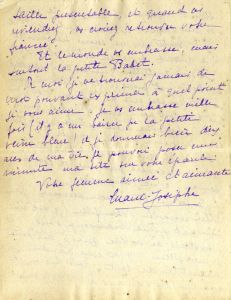 taille présentable, et quand vs
reviendrez vs croirez retrouver votre
fiancée.
Et le monde vs embrasse, mais
surtout la petite Babet.
R mon, je ne trouverai jamais de
mots pouvant exprimer à quel point
je vous aime. Je vs embrasse mille
fois (il y a un baiser sur la petite
veine bleue) et je donnerais bien dix
ans de ma vie pr pouvoir poser une
minute ma tête sur votre épaule.
Votre femme aimée et aimante
Marie-Josèphe